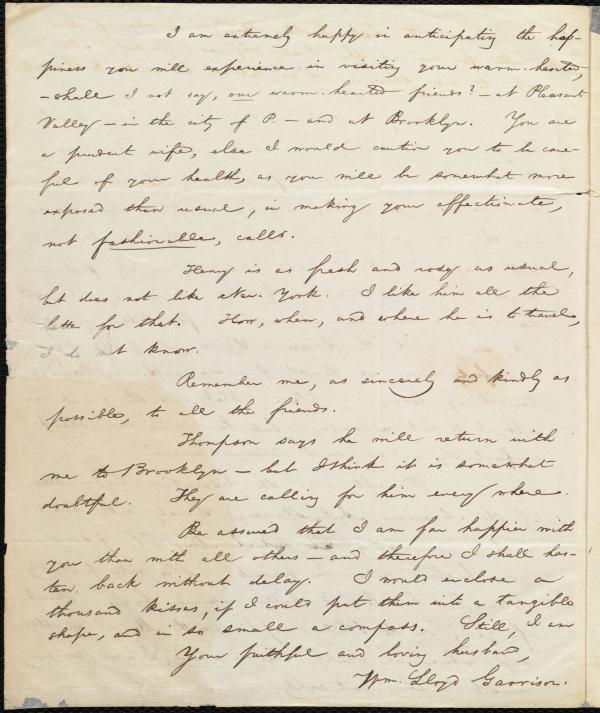 I am extremely happy in anticipating the hap-
piness you will experience in visiting your warm-hearted,
—shall I not say, our warm-hearted friends?—at Pleasant
Valley—in the city of P.—and at Brooklyn. You are
a prudent wife, else I would caution you to be care-
ful of your health, as you will be somewhat more
exposed than usual, in making your affectionate,
not fashionable, calls.
Henry is as fresh and rosy as usual,
but does not like New-York. I like him all the
better for that. How, when, and where he is to travel,
I do not know.
Remember me, as sincerely and kindly as
possible, to all the friends.
Thompson says he will return with
me to Brooklyn—but I think it is somewhat
doubtful. They are calling for him every where.
Be assured that I am far happier with
you than with all others—and therefore I shall has-
ten back without delay. I would enclose a
thousand kisses, if I could put them into a tangible
shape, and in so small a compass. Still, I am
Your faithful and loving husband,
Wm. Lloyd Garrison.